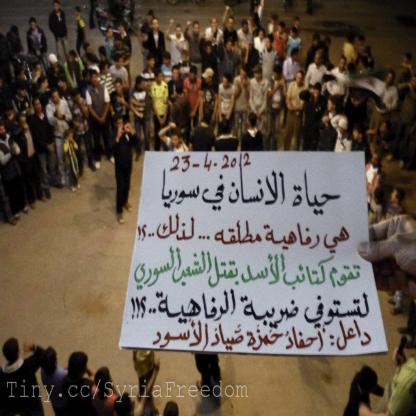 23-4-2012
حياة الانسان في سوريا
هي رفاهية مطلقه... لذلك..؟!
تقوم كتائب الأسد بقتل الشعب السوري
لتستوفي ضريبة الرفاهية..؟!!
داعل: أحفاد حمزة صياد الأسود
Tiny.cc/SyriaFreedom